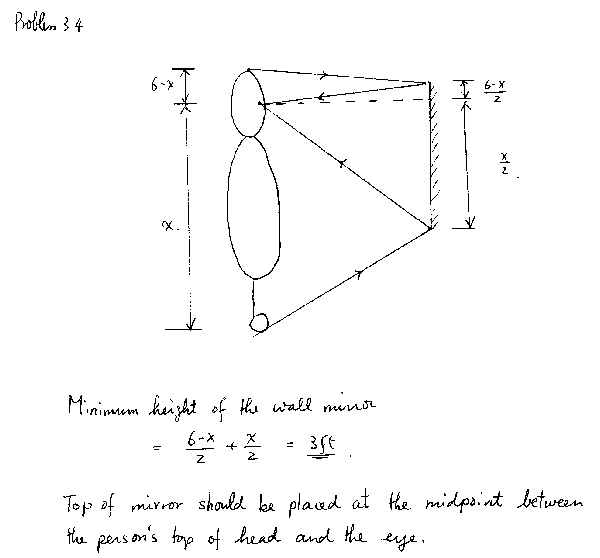 Problem 3.4
6-x
6-x/2
x/2.
x.
Minimum height of the wall mirror
= 6-x/2 + x/2 = 3ft.
Top of mirror should be placed at the midpoint between
the person's top of head and the eye.